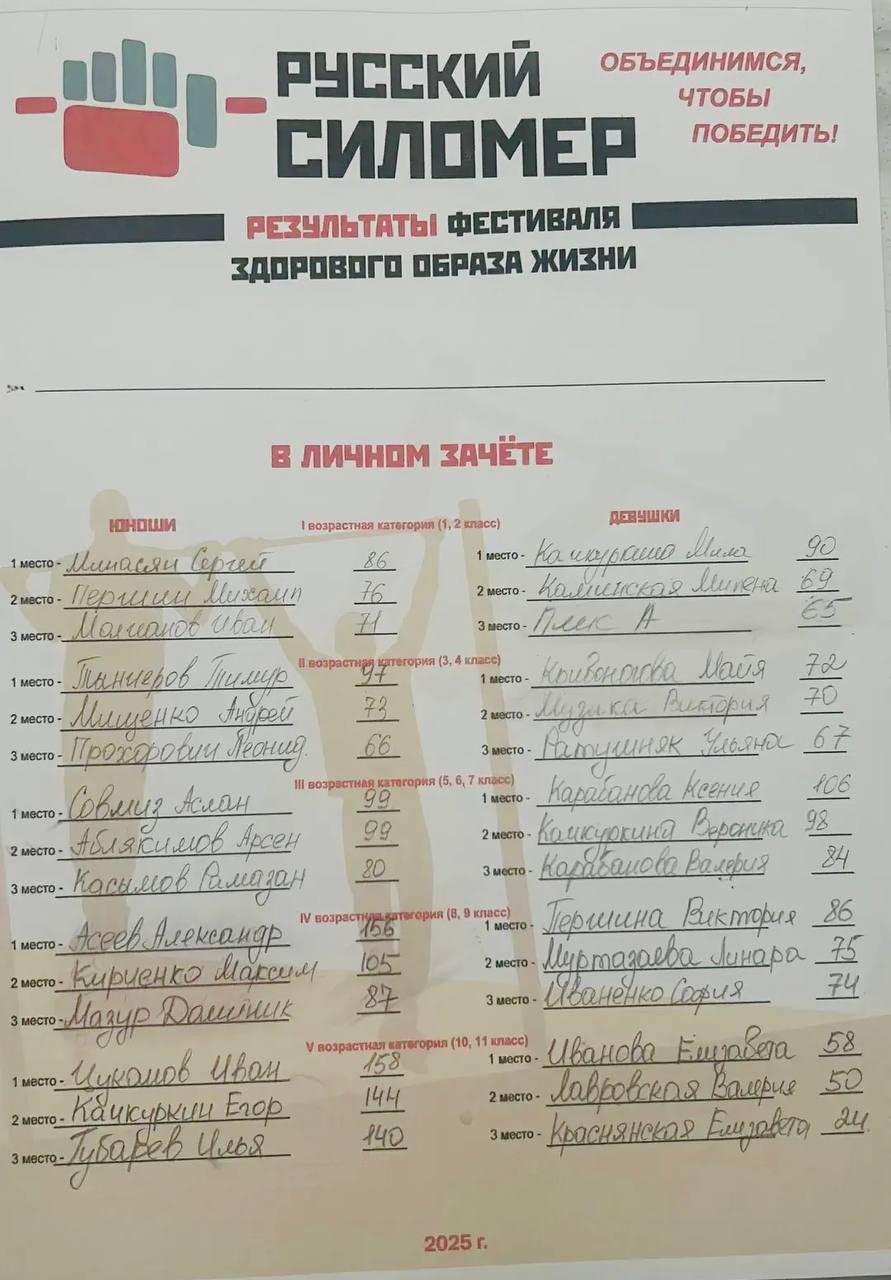 РУССКИЙ
СИЛОМЕР
ОБЪЕДИНИМСЯ,
ЧТОБЫ
ПОБЕДИТЬ!
РЕЗУЛЬТАТЫ ФЕСТИВАЛЯ
ЗДОРОВОГО ОБРАЗА ЖИЗНИ
В ЛИЧНОМ ЗАЧЁТЕ
ЮНОШИ
ДЕВУШКИ
I возрастная категория (1, 2 класс)
1 место - Минасян Сергей 86
1 место - Мила 90
2 место - Першин Михаил 76
2 место - Каминская Милена 69
3 место - Молчанов Иван 71
3 место - Плек А 65
II возрастная категория (3, 4 класс)
1 место - Тынчеров Тимур 97
1 место - Кривоногова Майя 72
2 место - Мищенко Андрей 73
2 место - Музыка Виктория 70
3 место - Прохорович Леонид. 66
3 место - Ратушняк Ульяна 67
III возрастная категория (5, 6, 7 класс)
1 место - Совмиз Аслан 99
1 место - Карабанова Ксения 106
2 место - Аблякимов Арсен 99
2 место - Качкуркина Вероника 98
3 место - Касымов Рамазан 80
3 место - Карабанова Валерия 84
IV возрастная категория (8, 9 класс)
1 место - Асеев Александр 156
1 место - Першина Виктория 86
2 место - Кириенко Максим 105
2 место - Муртазаева Линара 75
3 место - Мазур Доминик 87
3 место - Иваненко София 74
V возрастная категория (10, 11 класс)
1 место - Цукамов Иван 158
1 место - Иванова Елизавета 58
2 место - Качкуркин Егор 144
2 место - Лавровская Валерия 50
3 место - Губарев Илья 140
3 место - Краснянская Елизавета 24
2025 г.